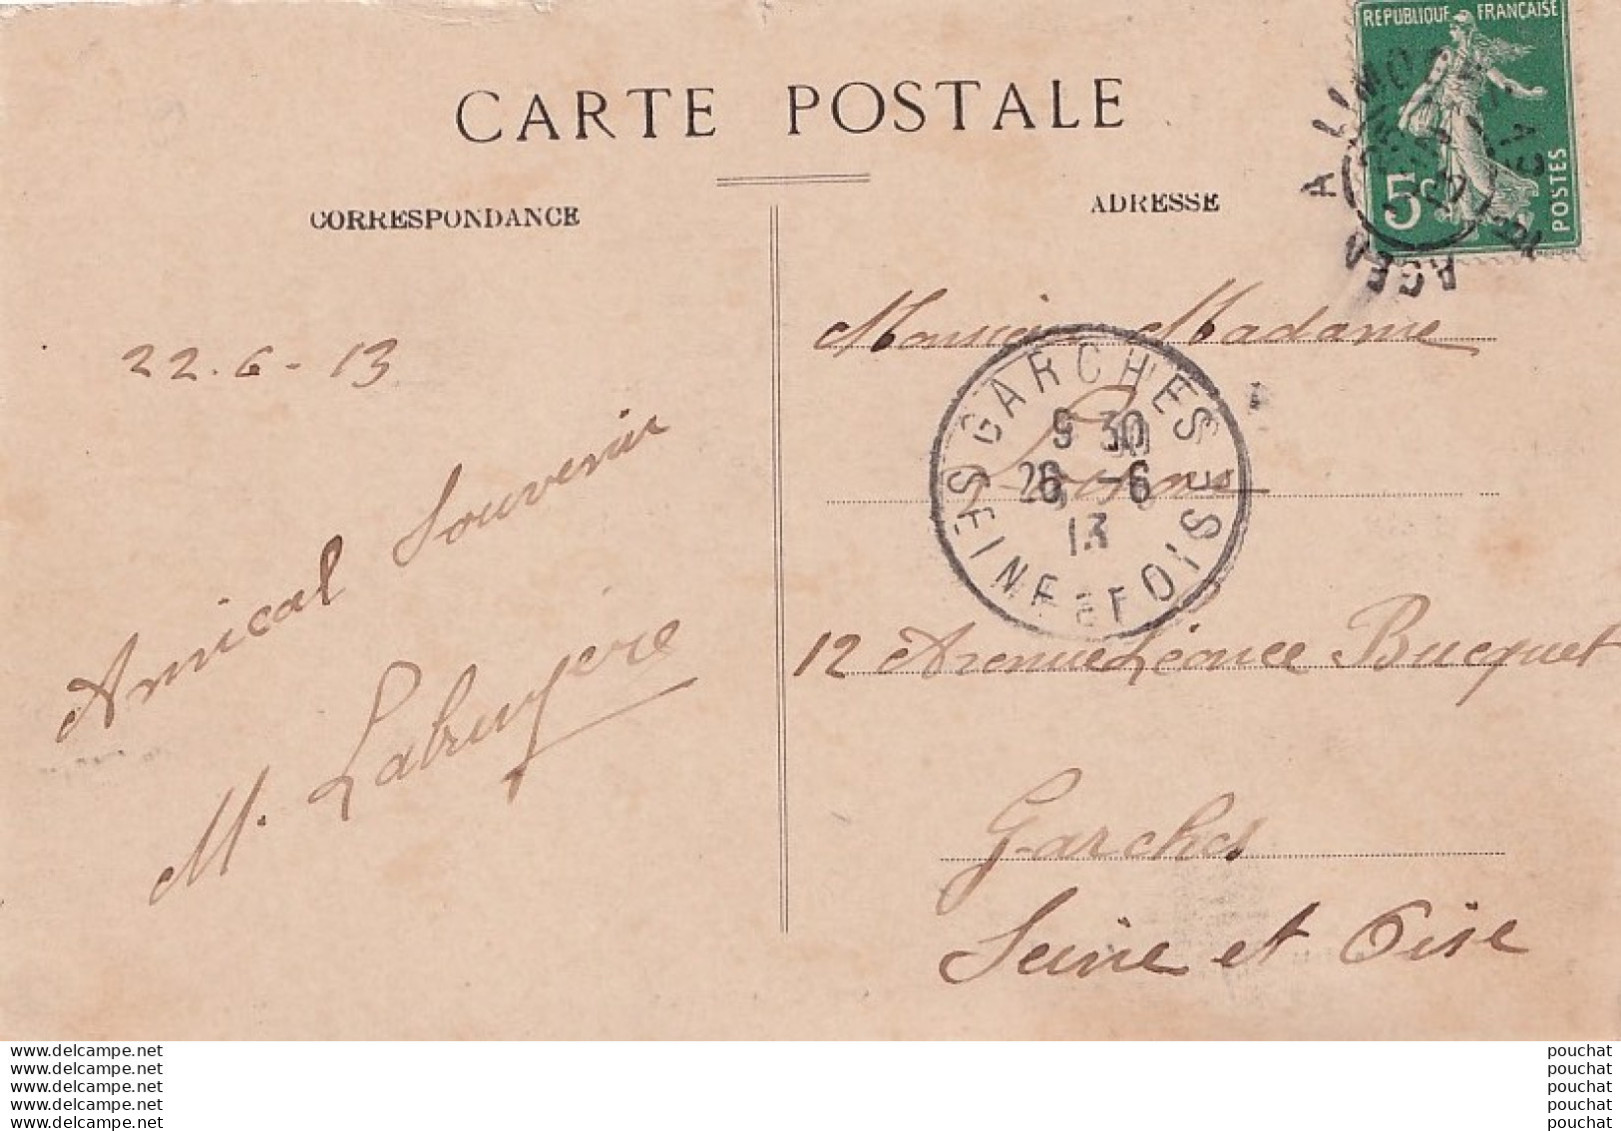 CARTE POSTALE
CORRESPONDANCE
ADRESSE
REPUBLIQUE FRANÇAISE
5c
POSTES
22.6-13
Amical Souvenir
M. Labruyère
Monsieur Madame
12 Avenue Léonce Bucquet
Garches
Seine et Oise
GARCHES
9 30
26 -6
13
SEINE ET OISE
AGEN A
www.delcampe.net
www.delcampe.net
www.delcampe.net
www.delcampe.net
www.delcampe.net
pouchat
pouchat
pouchat
pouchat
pouchat